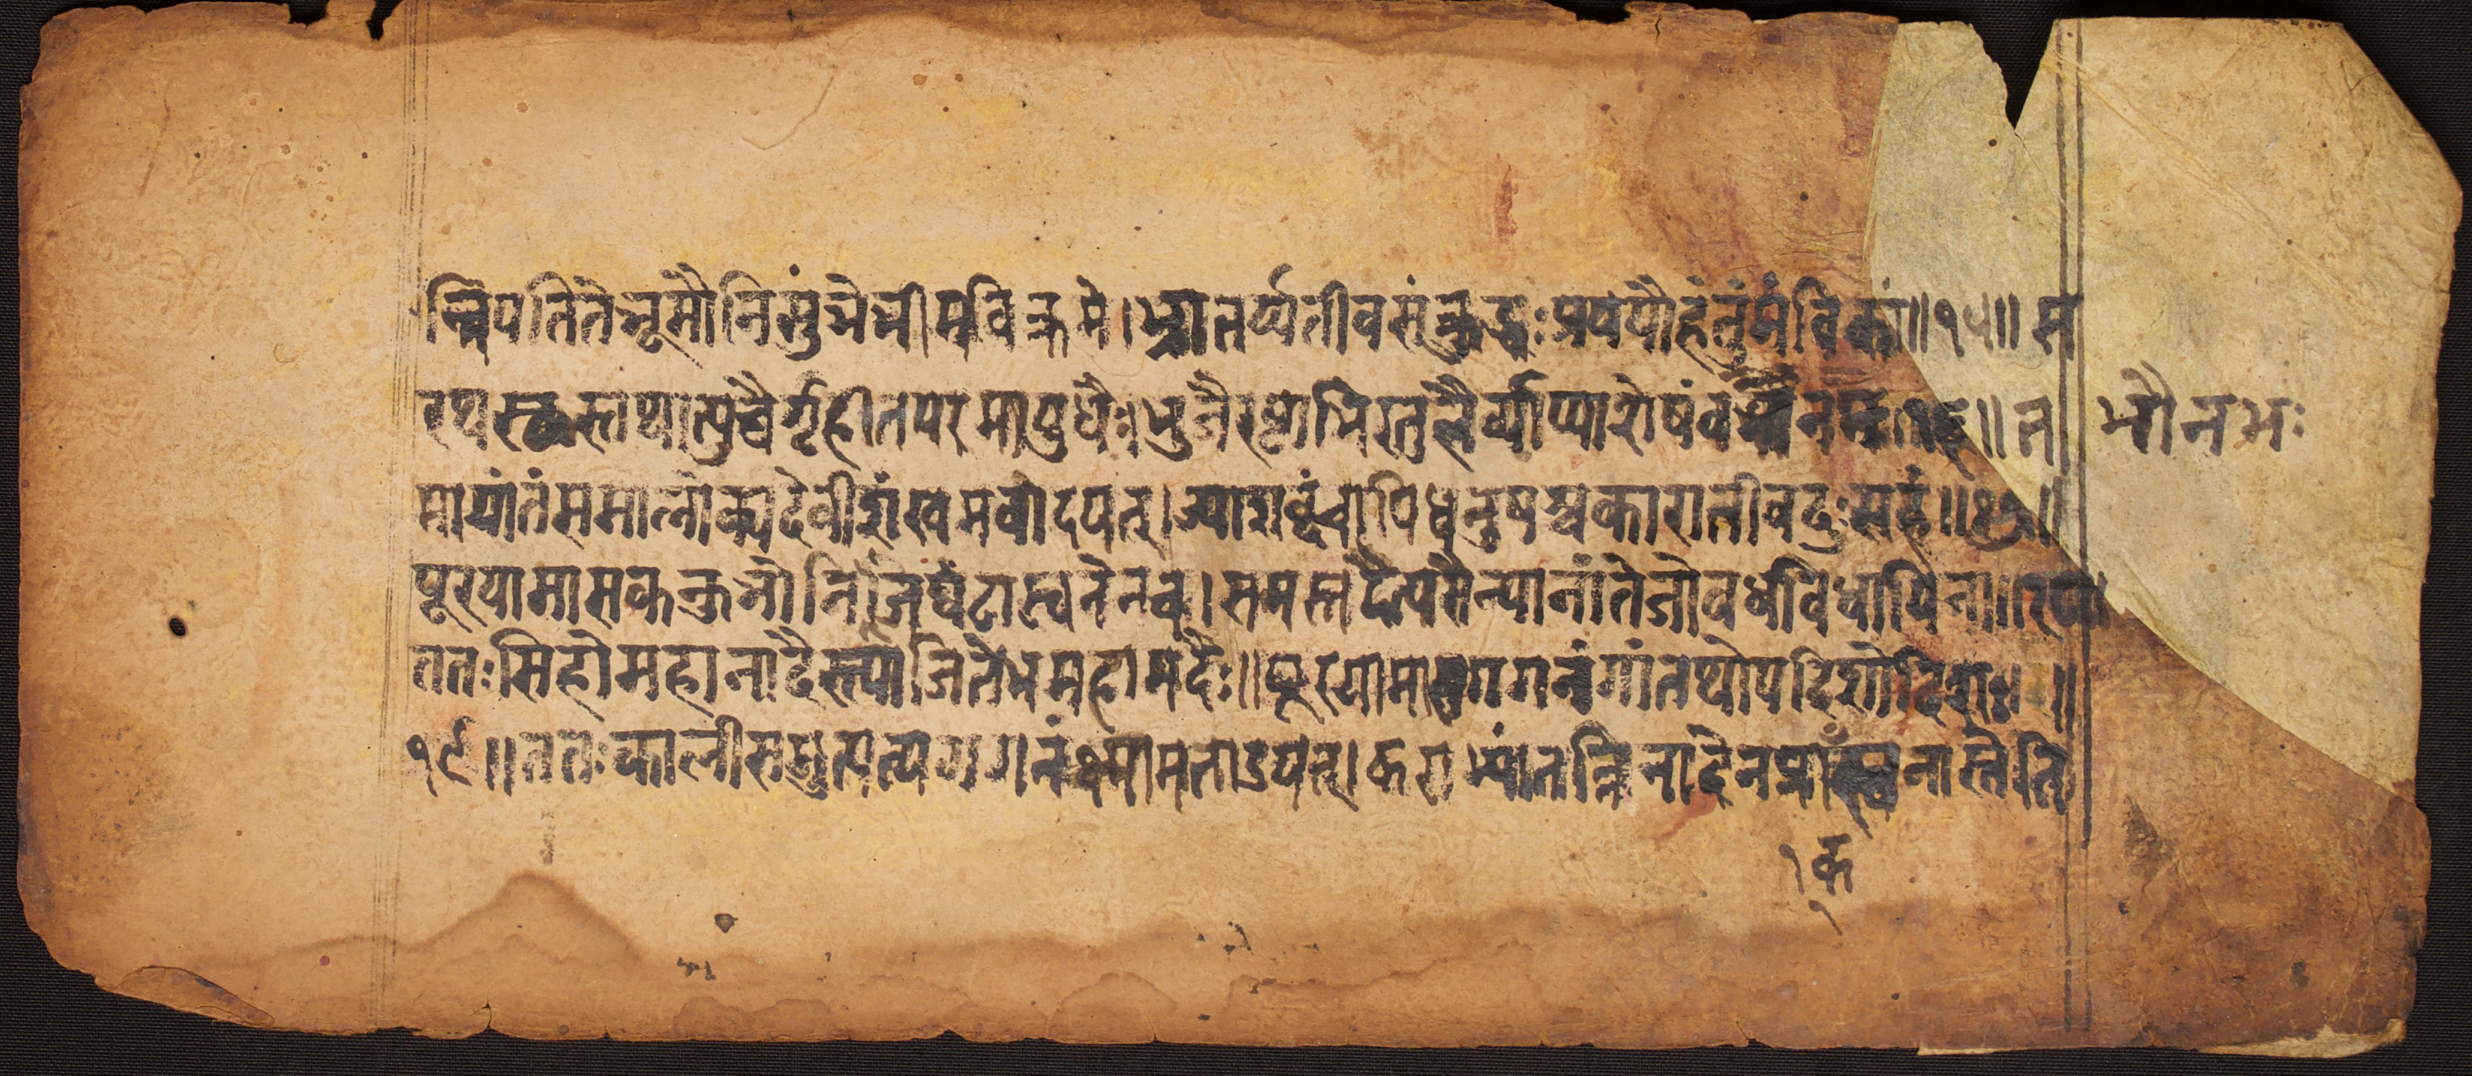 न्निपतितेभूमौनिसुंभेभीमविक्रमे।भ्रातर्य्यतीवसंक्रुद्धःप्रययौहंतुमंविकां॥१५॥स
रथस्थस्तथात्युच्चैर्गृहीतपरमायुधैः।भुजैरष्टाभिरतुलैर्व्याप्याशेषंव १६॥त भौनभः
मायांतंसमालोक्यदेवीशंखमवादयत्।ज्याशब्दंचापिधनुषश्चकारातीवदुःसहं॥१७॥
पूरयामासककुभोनिजघंटास्वनेनच।समस्तदैत्यसैन्यानांतेजोवधविधायिना॥१८॥
ततःसिंहोमहानादैस्त्याजितेभमहामदैः॥पूरयामासगगनंगांतथोपदिशोदिश॥
१९॥ततःकालीसमुत्पत्यगगनंक्ष्मामताडयत्।कराभ्यांतन्निनादेनप्राक्स्वनास्तेति
१क